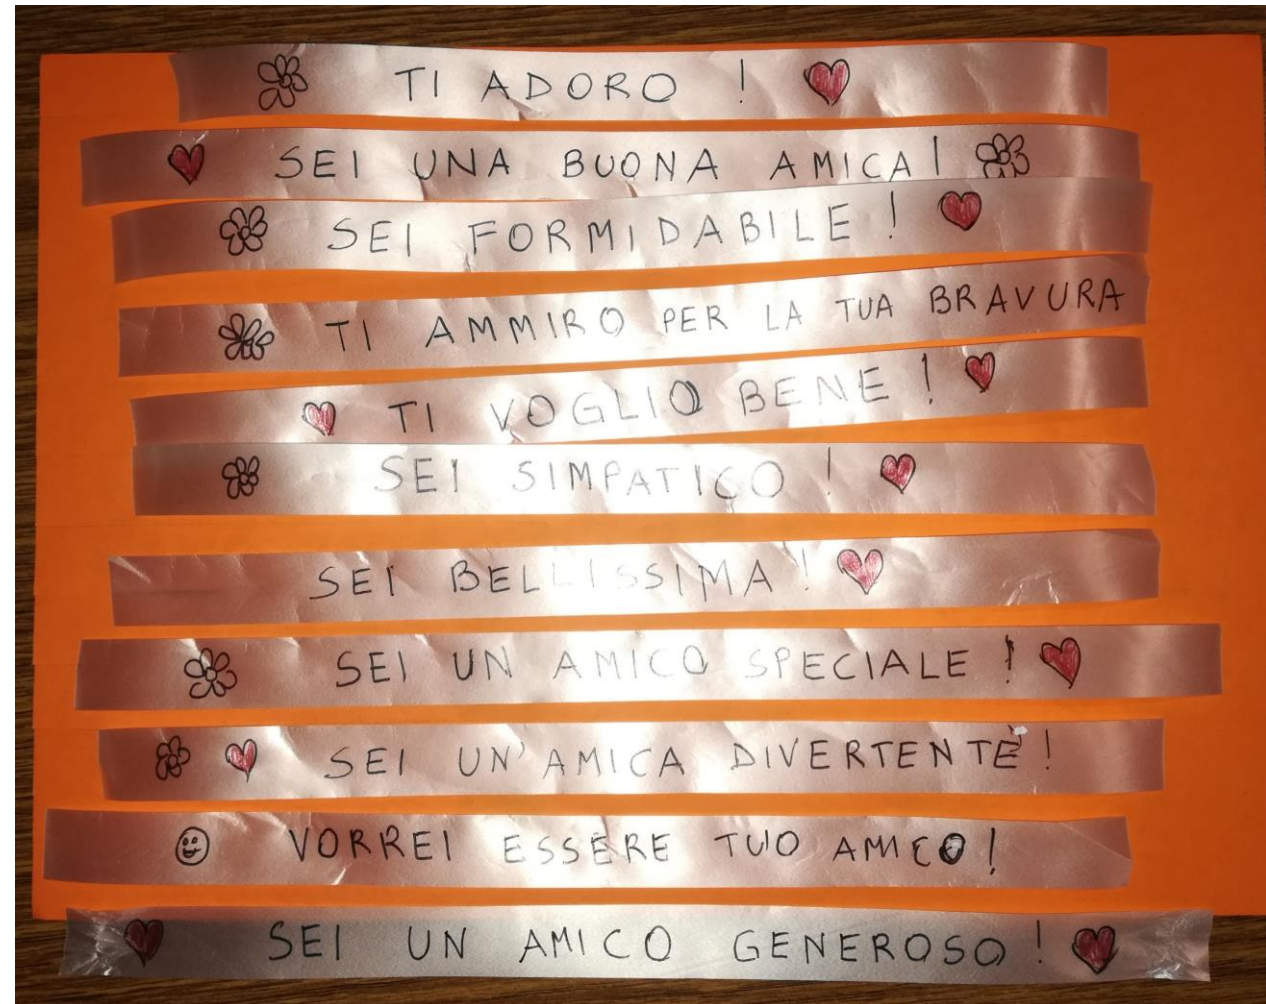 TI ADORO !
SEI UNA BUONA AMICA!
SEI FORMIDABILE !
TI AMMIRO PER LA TUA BRAVURA
TI VOGLIO BENE !
SEI SIMPATICO !
SEI BELLISSIMA !
SEI UN AMICO SPECIALE !
SEI UN'AMICA DIVERTENTE !
VORREI ESSERE TUO AMICO !
SEI UN AMICO GENEROSO !